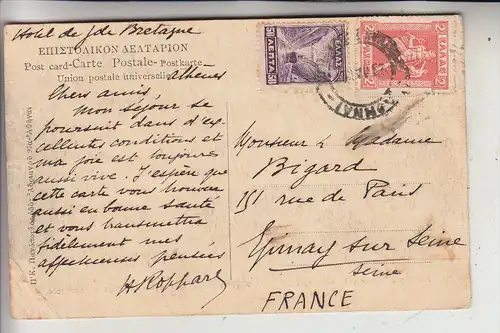 Hotel de Gde Bretagne
ΕΠΙΣΤΟΛΙΚΟΝ ΔΕΛΤΑΡΙΟΝ
Post card-Carte Postale-Postkarte
Union postale universelle
Athènes
Chers amis,
Mon séjour se
poursuit dans d'ex-
cellentes conditions et
ma joie est toujours
aussi vive. J'espère que
cette carte vous trouvera
aussi en bonne santé
et vous transmettra
fidèlement mes
affectueuses pensées
ΕΛΛΑΣ
50 ΛΕΠΤΑ 50
2 ΕΛΛΑΣ 2
2 2
Monsieur & Madame
Bigard
151 rue de Paris
Epinay sur Seine
Seine
FRANCE